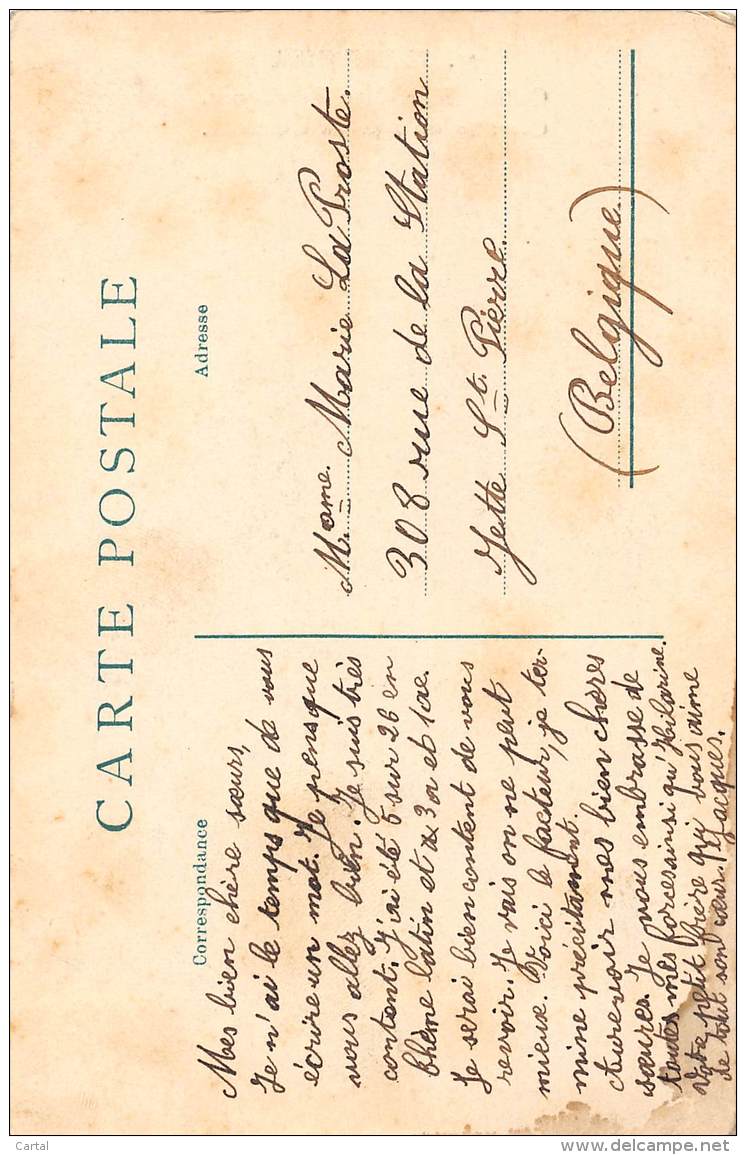 CARTE POSTALE
Correspondance
Mes bien chère sœurs,
Je n'ai le temps que de vous
écrire un mot. Je pens que
vous allez bien. Je suis très
content. J'ai été 5 sur 26 en
thème latin et 3 a et 1ae.
Je serai bien content de vous
revoir. Je vais on ne peut
mieux. Voici le facteur, je ter-
mine précitament.
Aurevoir mes bien chères
sœures. Je vous embrasse de
toutes mes forces ainsi qu'Hilarine.
Votre petit frère qui vous aime
de tout son cœur. Jacques.
Adresse
Mame. Marie La Proste.
308 rue de la Station
Jette St. Pierre
(Belgique)
Cartal
delcampe.net